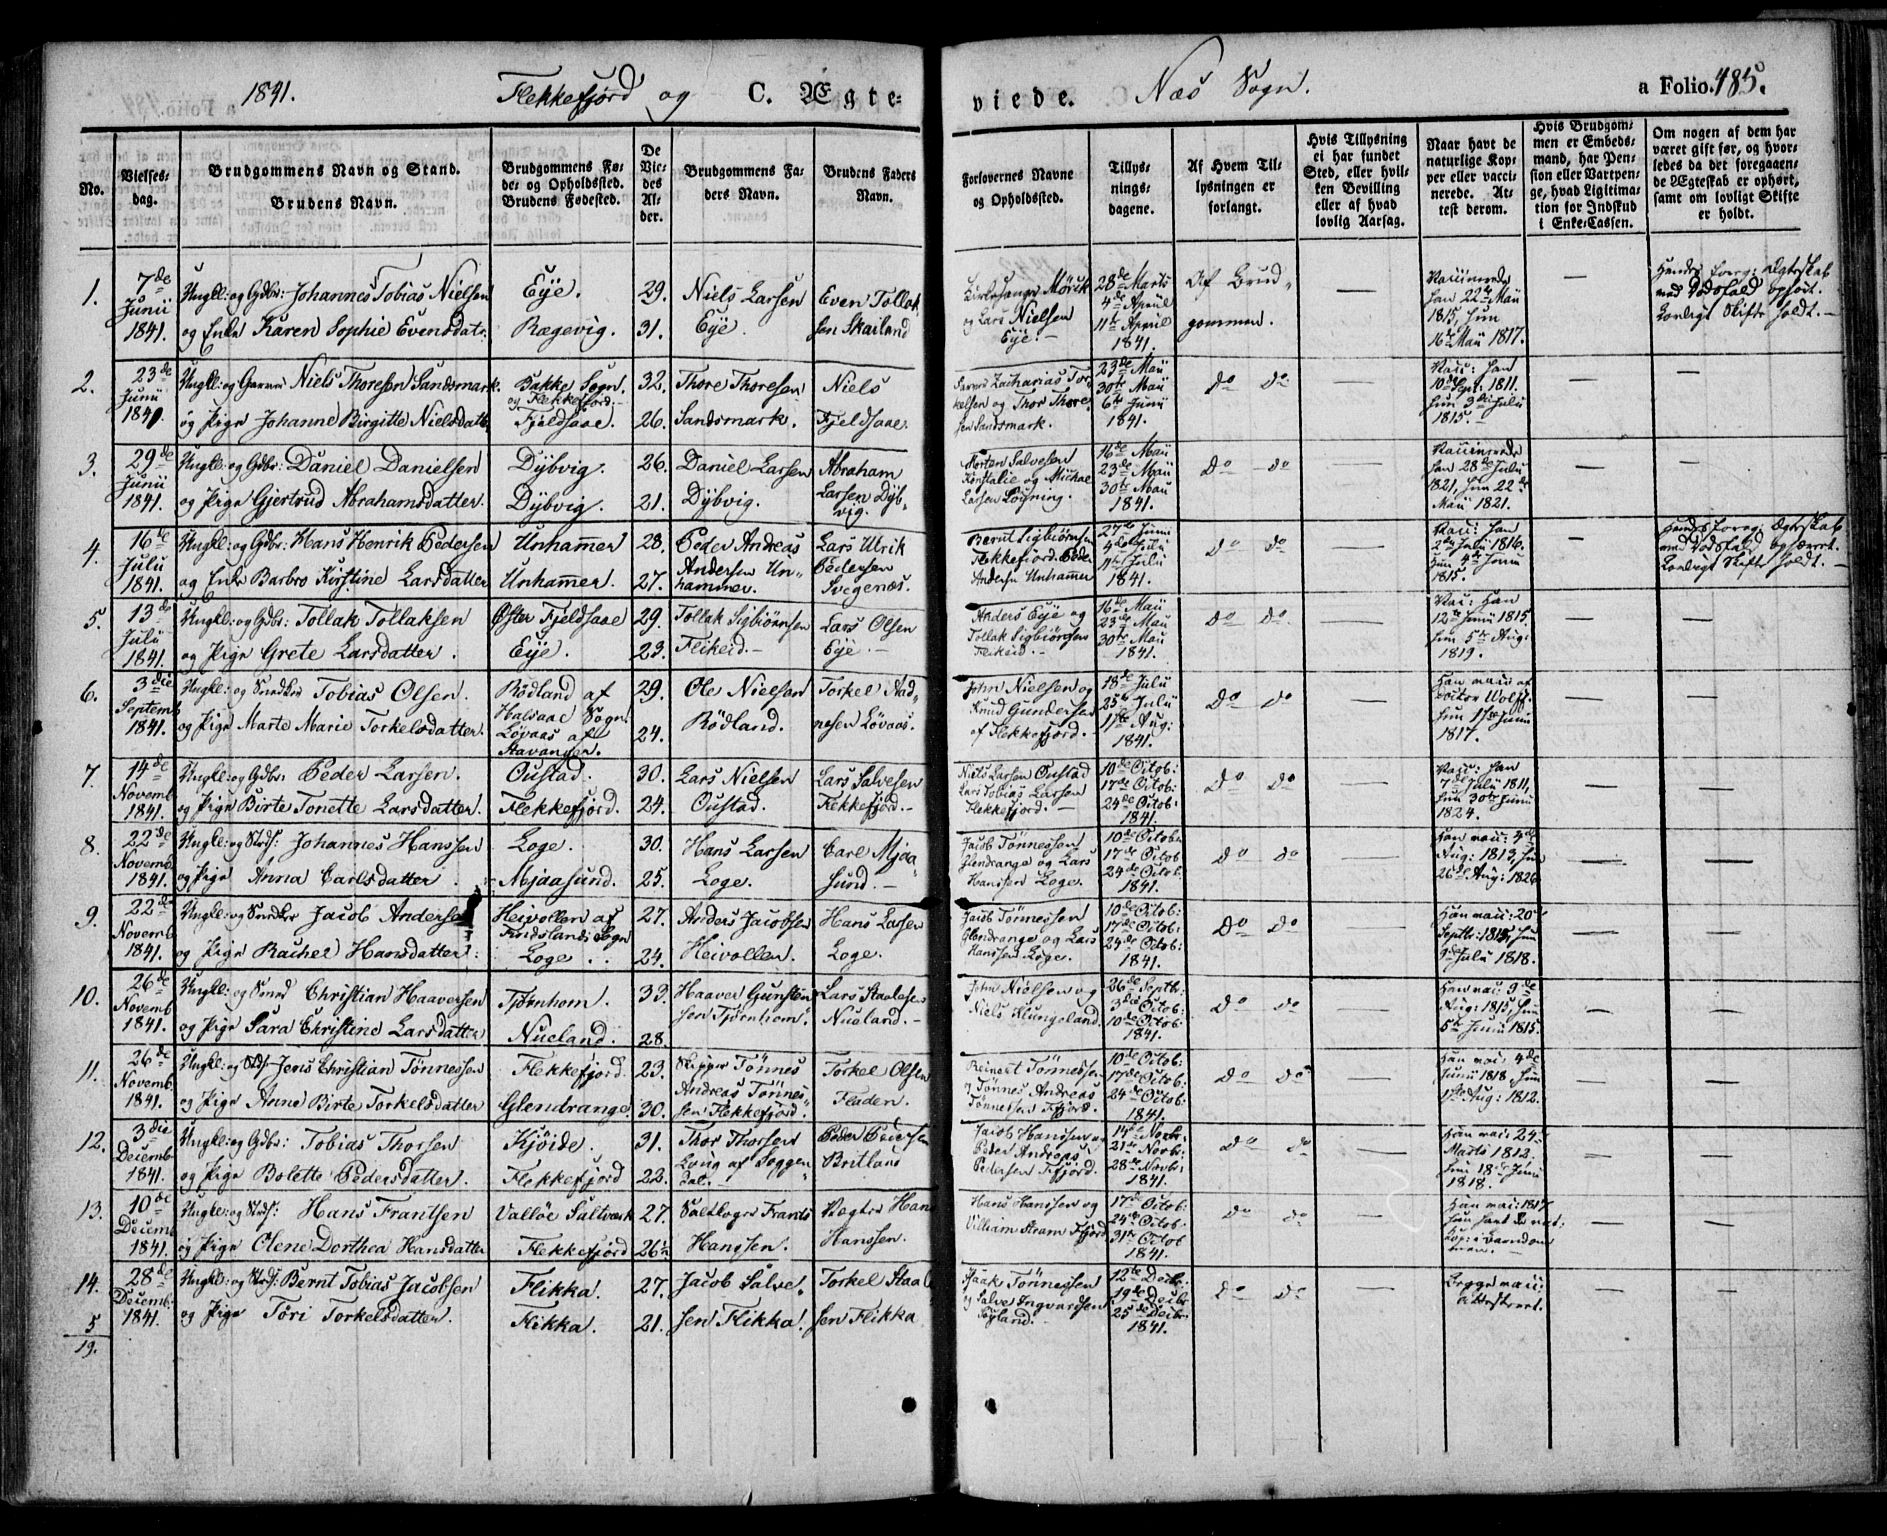 1841. Flekkefjord og C. Ægteviede. Næs Sogn. a Folio. 485.
No. | Vielsesdag. | Brudgommens Navn og Stand. Brudens Navn. | Brudgommens Føde- og Opholdssted. Brudens Fødested. | De Viedes Alder. | Brudgommens Faders Navn. | Brudens Faders Navn. | Forlovernes Navne og Opholdssted. | Tillysningsdagene. | Af Hvem Tillysningen er forlangt. | Hvis Tillysning ei har fundet Sted, eller hvilken Bevilling eller af hvad lovlig Aarsag. | Naar havt de naturlige Kopper eller vaccinerede. Attest derom. | Hvis Brudgommen er Embedsmand, har Pension eller Vartpenge, hvad Ligitimation for Indskud i Enke-Cassen. | Om nogen af dem har været gift før, og hvorledes da det foregaaende Ægteskab er ophørt, samt om lovligt Skifte er holdt.
1. | 7de Junii 1841. | Ungkl: og Gdbr: Johannes Tobias Nielsen og Enke Karen Sophie Evensdatr: | Eÿe. Rægevig. | 29. 31. | Niels Larsen Eÿe. | Even Tollaksen Skailand | Kirkesanger Mörck og Lars Nielsen Eÿe. | 28de Marts 4de April 11te April 1841. | Af Brudgommen. | — | Vaccinerede han 22de Mai 1815, hun 16de Mai 1817. | — | Hendes foreg: Ægteskab ved Dödsfald ophört. Lovligt Skifte holdt. —
2. | 23de Junii 1841. | Ungkl: og Garver Niels Thoresen Sandsmark. og Pige Johanne Birgitte Nielsdattr | Bakke Sogn. og Flekkefjord. Fjeldsaae. | 32. 26. | Thore Thoresen Sandsmark. | Niels Fjeldsaae. | Garver Zacharias Torkelsen og Thor Thoresen Sandsmark. | 23de Mai 30te Mai 6te Junii 1841. | Do Do | — | Vacc: han 10de Sept: 1811. hun 3die Julii 1815. | — | —
3. | 29de Junii 1841. | Ungkl: og Gdbr: Daniel Danielsen og Pige Gjertrud Abrahamsdatter. | Dÿbvig. Dÿbvig. | 26. 21. | Daniel Larsen Dÿbvig. | Abraham Larsen Dÿbvig. | Morten Salvesen Konstalie og Michael Larsen Lögning. | 16de Mai 23de Mai 30te Mai 1841. | Do Do | — | Vaccinerede han 28de Julii 1821, hun 22de Mai 1821. | — | —
4. | 16de Julii 1841. | Ungkl: og Gdbr: Hans Henrik Pedersen og Enke Barbro Kirstine Larsdatter | Unhammer Unhammer. | 28. 27. | Peder Andreas Andersen Unhammer. | Lars Ulrik Pedersen Svegenæs. | Bernt Sigbiörnsen Flekkefjord. Peder Andersen Unhammer | 27de Junii 4de Julii 11te Julii 1841. | Do Do | — | Vacc: han 2den Julii 1816. hun 4de Junii 1815. | — | Hendes foreg: Ægteskab ved Dödsfald ophævet. Lovligt Skifte holdt. —
5. | 13de Julii 1841. | Ungkl: og Gdbr: Tollak Tollaksen og Pige Grete Larsdatter. | Öster Fjeldsaae Eÿe. | 29. 23. | Tollak Sigbiörnsen Flikeid. | Lars Olsen Eÿe. | Anders Eÿe og Tollak Sigbiörnsen Flikeid. | 16de Mai 23de Mai 30te Mai 1841. | Do Do. | — | Vac: Han 12te Junii 1815. hun 5te Aug: 1819. | — | —
6. | 3die Septemb 1841. | Ungkl: og Snedker Tobias Olsen. og Pige Marte Marie Torkelsdatter. | Rödland af Halsaae Sogn. Lövaas af Stavanger. | 29. 24. | Ole Nielsen Rödland. | Torkel Aadnesen Lövaas. | John Nielsen og Knud Gundersen af Flekkefjord. | 18de Julii 25de Julii 1ste Aug: 1841. | Do Do | — | Han vacc: af Doctor Wolff. hun 17de Junii 1817. | — | —
7. | 14de Novemb 1841. | Ungkl: og Gdbr: Peder Larsen. og Pige Birte Tonette Larsdatter. | Oustad. Flekkefjord. | 30. 24. | Lars Nielsen Oustad. | Lars Salvesen Flekkefjord. | Niels Larsen Oustad Lars Tobias Larsen Flekkefjord. | 10de Octob: 17de Octob: 24de Octob: 1841. | Do Do | — | Vacc: han 7de Julii 1811, hun 30te Junii 1824. | — | —
8. | 22de Novemb. 1841. | Ungkl: og Strds: Johannes Hanssen og Pige Anna Carlsdatter. | Loge. Mjaasund. | 30. 25. | Hans Larsen Loge. | Carl Mjaasund. | Jacob Tönnessen Glendrange og Lars Hanssen Loge. | 10de Octob: 17de Octob 24de Octob. 1841. | Do Do | — | Han vacc: 4de Aug: 1813, hun 26de Aug: 1826. | — | —
9. | 22de Novemb 1841. | Ungkl: og Snedker Jacob Andersen og Pige Rachel Hansdatter: | Heivollen af Findslands Sogn Loge. | 27. 24. | Anders Jacobsen Heivollen. | Hans Larsen Loge. | Jacob Tönnessen Glendrange og Lars Hanssen Loge. | 10de Octob: 17de Octob: 24de Octob: 1841. | Do Do | — | Han vacc: 20 Septbr: 1815, hun 9de Julii 1818. | — | —
10. | 26de Novemb 1841. | Ungkl: og Smed Christian Haaversen og Pige Sara Christine Larsdatter | Tjörnhom. Nueland. | 33. 28. | Haaver Gunstensen Tjörnhom. | Lars Staalesen Nueland. | John Nielsen og Niels Klungeland. | 26de Septbr: 3die Octob: 10de Octob: 1841. | Do Do | — | Han vacc: 9de Aug: 1815, hun 5te Junii 1815. | — | —
11. | 26de Novemb. 1841. | Ungkl: og Strds: Jens Christian Tönnessen og Pige Anne Birte Torkelsdatter | Flekkefjord. Glendrange. | 23. 30. | Skipper Tönnes Andreas Tönnessen Flekkefjord. | Torkel Olsen Fladen. | Reinert Tönnessen og Tönnes Andreas Tönnessen Ffjord. | 10de Octob: 17de Octob: 24de Octob: 1841. | Do Do | — | Han vacc: 4de Junii 1818, hun 17de Aug: 1812. | — | —
12. | 3die Decemb. 1841. | Ungkl: og Gdbr: Tobias Thorsen og Pige Bolette Pedersdatter. | Kjöide. Flekkefjord | 31. 22. | Thor Thorsen Loug af Soggendal. | Peder Pedersen Britland | Jacob Hanssen og Peder Andreas Pedersen Ffjord. | 14de Novbr: 21de Novbr: 28de Novbr: 1841. | Do Do | — | Han vacc: 24de Marts 1812. hun 18de Junii 1818. | — | —
13. | 10de Decemb 1841. | Ungkl: og Strds: Hans Frantsen og Pige Olene Dorthea Hansdatter | Vallöe Saltværk Flekkefjord | 27. 26½ | Saltkoger Frants Hanssen. | Vægter Hans Hanssen. | Hans Hanssen og Villiam Stram Ffjord | 17de Octob: 24de Octob: 31te Octob 1841. | Do Do | — | Han vacc: 1817 hun havt de nat: Kop: i Barndommen. | — | —
14. | 28de Decemb. 1841. | Ungkl: og Strds: Bernt Tobias Jacobsen og Pige Töri Torkelsdatter. | Flikka. Flikka. | 27. 21. | Jacob Salvesen Flikka. | Torkel Staalesen Flikka | Isaak Tönnessen og Salve Ingvardsen Högland. | 12te Decbr: 19de Decbr 25de Decbr. 1841. | Do Do | — | Begge vacc: attesteret. | — | —
5
19.